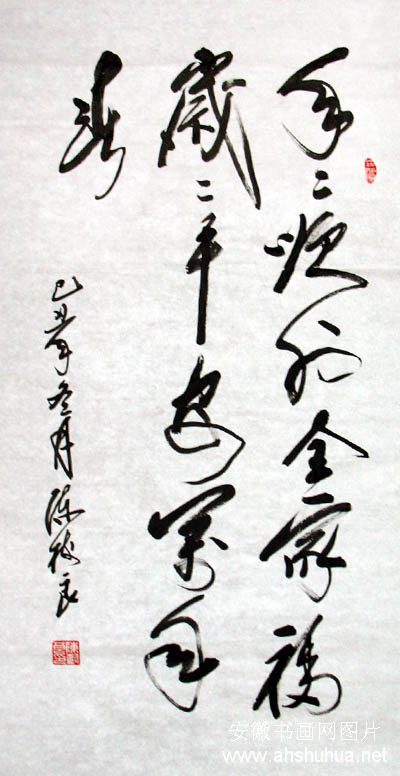 年々顺利全家福
歲々平安萬年
春
己丑年冬月陈良
安徽书画网图片
www.ahshuhua.net